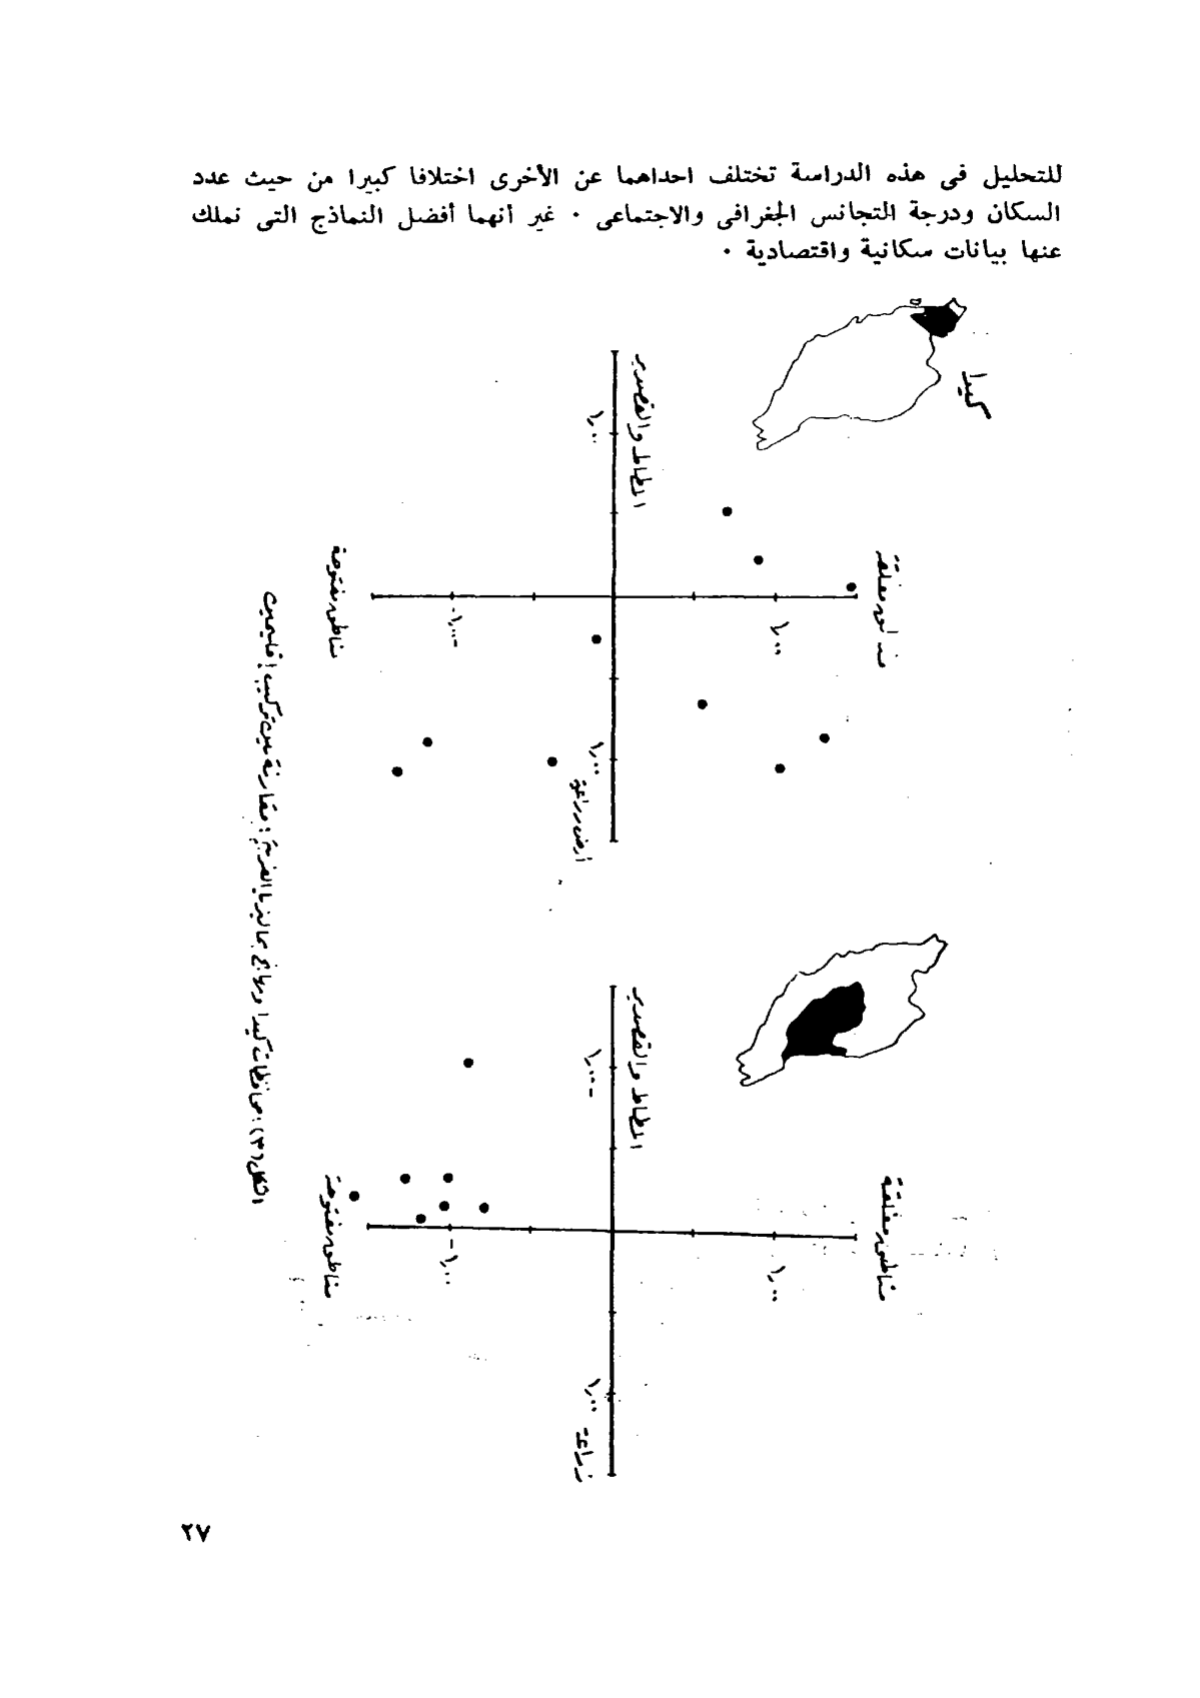 للتحليل فى هذه الدراسة تختلف احداهما عن الأخرى اختلافا كبيرا من حيث عدد
السكان ودرجة التجانس الجغرافى والاجتماعى ٠ غير أنهما أفضل النماذج التى نملك
عنها بيانات سكانية واقتصادية ٠
كيدا
المطاط والقصدير
١٫٠٠
مناطق مغلقة
١٫٠٠
مناطق مفتوحة
-١٫٠٠
١٫٠٠
أرض زراعية
المطاط والقصدير
-١٫٠٠
مناطق مغلقة
١٫٠٠
مناطق مفتوحة
-١٫٠٠
١٫٠٠
زراعة
الشكل (٣) : محافظات كيدا وبهانج بماليزيا الغربية : مقارنة بين تركيب إقليمين
٢٧